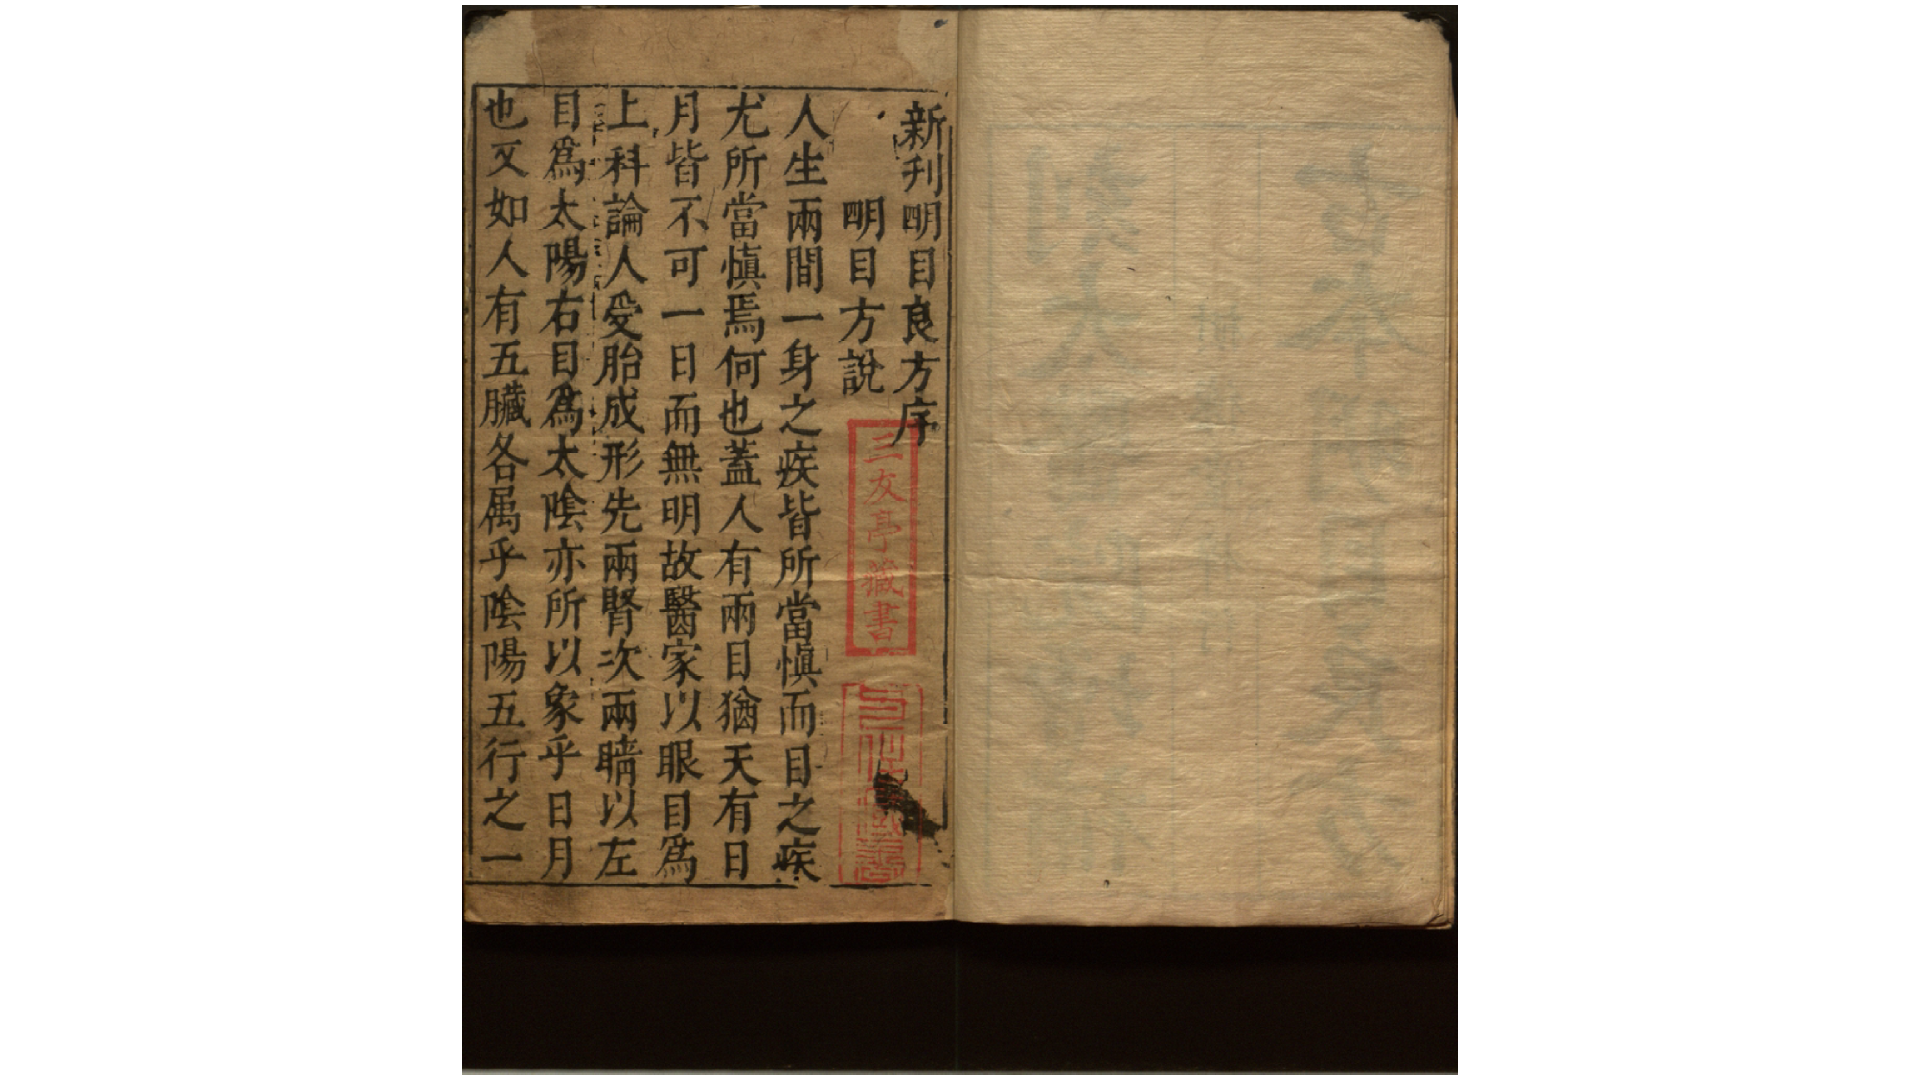 新刋明目良方序
明目方說
人生兩間一身之疾皆所當慎而目之疾
尤所當慎焉何也蓋人有兩目猶天有日
月皆不可一日而無明故醫家以眼目為
上科論人受胎成形先兩腎次兩睛以左
目爲太陽右目爲太陰亦所以象乎日月
也又如人有五臟各属乎陰陽五行之一
三友亭藏書